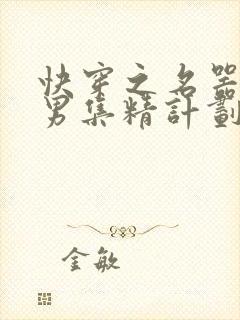 快穿之名器
男集精計劃
金敏